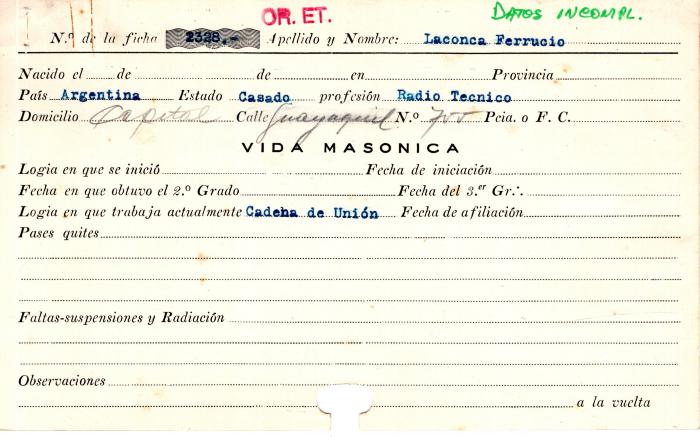 OR. ET. DATOS INCOMPL.
N.º de la ficha 2328.- Apellido y Nombre: Laconca Ferrucio
Nacido el de de en Provincia
País Argentina Estado Casado profesión Radio Tecnico
Domicilio Capital Calle Guayaquil N.º 755 Pcia. o F. C.
VIDA MASONICA
Logia en que se inició Fecha de iniciación
Fecha en que obtuvo el 2.º Grado Fecha del 3.er Gr∴
Logia en que trabaja actualmente Cadena de Unión Fecha de afiliación
Pases quites
Faltas-suspensiones y Radiación
Observaciones
a la vuelta